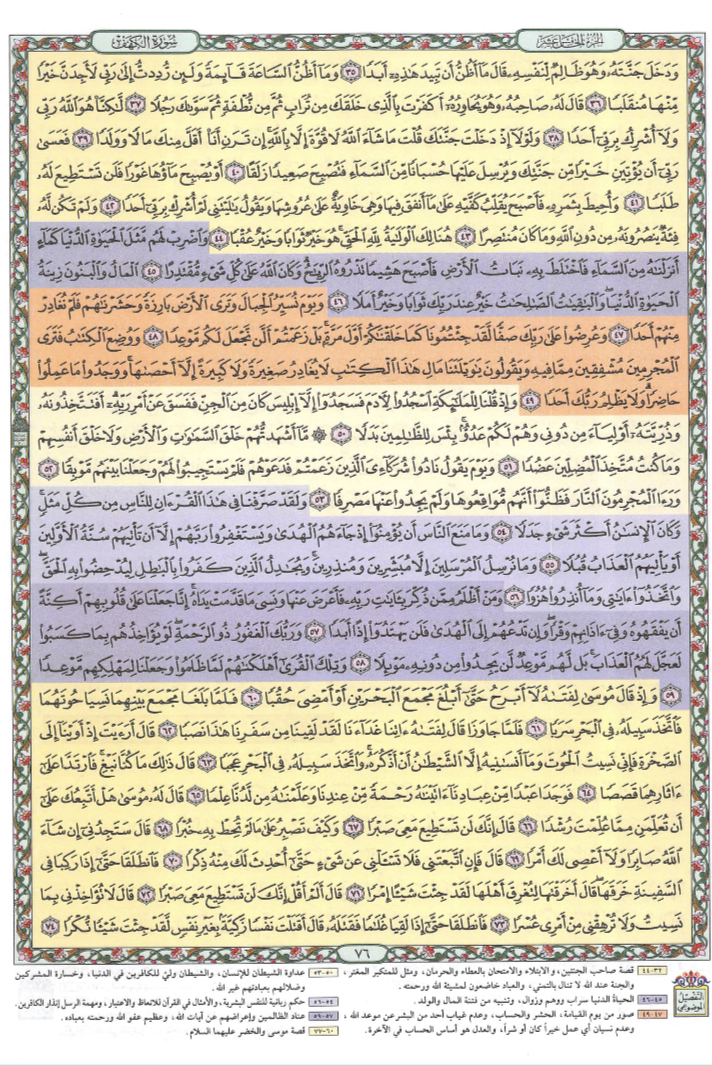 الجزء الخامس عشر
سورة الكهف
وَدَخَلَ جَنَّتَهُۥ وَهُوَ ظَالِمٌ لِّنَفْسِهِۦ قَالَ مَآ أَظُنُّ أَن تَبِيدَ هَٰذِهِۦٓ أَبَدًا ٣٥ وَمَآ أَظُنُّ ٱلسَّاعَةَ قَآئِمَةً وَلَئِن رُّدِدتُّ إِلَىٰ رَبِّى لَأَجِدَنَّ خَيْرًا
مِّنْهَا مُنقَلَبًا ٣٦ قَالَ لَهُۥ صَاحِبُهُۥ وَهُوَ يُحَاوِرُهُۥٓ أَكَفَرْتَ بِٱلَّذِى خَلَقَكَ مِن تُرَابٍ ثُمَّ مِن نُّطْفَةٍ ثُمَّ سَوَّىٰكَ رَجُلًا ٣٧ لَّٰكِنَّا۠ هُوَ ٱللَّهُ رَبِّى
وَلَآ أُشْرِكُ بِرَبِّىٓ أَحَدًا ٣٨ وَلَوْلَآ إِذْ دَخَلْتَ جَنَّتَكَ قُلْتَ مَا شَآءَ ٱللَّهُ لَا قُوَّةَ إِلَّا بِٱللَّهِ إِن تَرَنِ أَنَا۠ أَقَلَّ مِنكَ مَالًا وَوَلَدًا ٣٩ فَعَسَىٰ
رَبِّىٓ أَن يُؤْتِيَنِ خَيْرًا مِّن جَنَّتِكَ وَيُرْسِلَ عَلَيْهَا حُسْبَانًا مِّنَ ٱلسَّمَآءِ فَتُصْبِحَ صَعِيدًا زَلَقًا ٤٠ أَوْ يُصْبِحَ مَآؤُهَا غَوْرًا فَلَن تَسْتَطِيعَ لَهُۥ
طَلَبًا ٤١ وَأُحِيطَ بِثَمَرِهِۦ فَأَصْبَحَ يُقَلِّبُ كَفَّيْهِ عَلَىٰ مَآ أَنفَقَ فِيهَا وَهِىَ خَاوِيَةٌ عَلَىٰ عُرُوشِهَا وَيَقُولُ يَٰلَيْتَنِى لَمْ أُشْرِكْ بِرَبِّىٓ أَحَدًا ٤٢ وَلَمْ تَكُن لَّهُۥ
فِئَةٌ يَنصُرُونَهُۥ مِن دُونِ ٱللَّهِ وَمَا كَانَ مُنتَصِرًا ٤٣ هُنَالِكَ ٱلْوَلَٰيَةُ لِلَّهِ ٱلْحَقِّ هُوَ خَيْرٌ ثَوَابًا وَخَيْرٌ عُقْبًا ٤٤ وَٱضْرِبْ لَهُم مَّثَلَ ٱلْحَيَوٰةِ ٱلدُّنْيَا كَمَآءٍ
أَنزَلْنَٰهُ مِنَ ٱلسَّمَآءِ فَٱخْتَلَطَ بِهِۦ نَبَاتُ ٱلْأَرْضِ فَأَصْبَحَ هَشِيمًا تَذْرُوهُ ٱلرِّيَٰحُ وَكَانَ ٱللَّهُ عَلَىٰ كُلِّ شَىْءٍ مُّقْتَدِرًا ٤٥ ٱلْمَالُ وَٱلْبَنُونَ زِينَةُ
ٱلْحَيَوٰةِ ٱلدُّنْيَا وَٱلْبَٰقِيَٰتُ ٱلصَّٰلِحَٰتُ خَيْرٌ عِندَ رَبِّكَ ثَوَابًا وَخَيْرٌ أَمَلًا ٤٦ وَيَوْمَ نُسَيِّرُ ٱلْجِبَالَ وَتَرَى ٱلْأَرْضَ بَارِزَةً وَحَشَرْنَٰهُمْ فَلَمْ نُغَادِرْ
مِنْهُمْ أَحَدًا ٤٧ وَعُرِضُوا۟ عَلَىٰ رَبِّكَ صَفًّا لَّقَدْ جِئْتُمُونَا كَمَا خَلَقْنَٰكُمْ أَوَّلَ مَرَّةٍ بَلْ زَعَمْتُمْ أَلَّن نَّجْعَلَ لَكُم مَّوْعِدًا ٤٨ وَوُضِعَ ٱلْكِتَٰبُ فَتَرَى
ٱلْمُجْرِمِينَ مُشْفِقِينَ مِمَّا فِيهِ وَيَقُولُونَ يَٰوَيْلَتَنَا مَالِ هَٰذَا ٱلْكِتَٰبِ لَا يُغَادِرُ صَغِيرَةً وَلَا كَبِيرَةً إِلَّآ أَحْصَىٰهَا وَوَجَدُوا۟ مَا عَمِلُوا۟
حَاضِرًا وَلَا يَظْلِمُ رَبُّكَ أَحَدًا ٤٩ وَإِذْ قُلْنَا لِلْمَلَٰٓئِكَةِ ٱسْجُدُوا۟ لِءَادَمَ فَسَجَدُوٓا۟ إِلَّآ إِبْلِيسَ كَانَ مِنَ ٱلْجِنِّ فَفَسَقَ عَنْ أَمْرِ رَبِّهِۦٓ أَفَتَتَّخِذُونَهُۥ
وَذُرِّيَّتَهُۥٓ أَوْلِيَآءَ مِن دُونِى وَهُمْ لَكُمْ عَدُوٌّۢ بِئْسَ لِلظَّٰلِمِينَ بَدَلًا ٥٠ ۞ مَّآ أَشْهَدتُّهُمْ خَلْقَ ٱلسَّمَٰوَٰتِ وَٱلْأَرْضِ وَلَا خَلْقَ أَنفُسِهِمْ
وَمَا كُنتُ مُتَّخِذَ ٱلْمُضِلِّينَ عَضُدًا ٥١ وَيَوْمَ يَقُولُ نَادُوا۟ شُرَكَآءِىَ ٱلَّذِينَ زَعَمْتُمْ فَدَعَوْهُمْ فَلَمْ يَسْتَجِيبُوا۟ لَهُمْ وَجَعَلْنَا بَيْنَهُم مَّوْبِقًا ٥٢
وَرَءَا ٱلْمُجْرِمُونَ ٱلنَّارَ فَظَنُّوٓا۟ أَنَّهُم مُّوَاقِعُوهَا وَلَمْ يَجِدُوا۟ عَنْهَا مَصْرِفًا ٥٣ وَلَقَدْ صَرَّفْنَا فِى هَٰذَا ٱلْقُرْءَانِ لِلنَّاسِ مِن كُلِّ مَثَلٍ
وَكَانَ ٱلْإِنسَٰنُ أَكْثَرَ شَىْءٍ جَدَلًا ٥٤ وَمَا مَنَعَ ٱلنَّاسَ أَن يُؤْمِنُوٓا۟ إِذْ جَآءَهُمُ ٱلْهُدَىٰ وَيَسْتَغْفِرُوا۟ رَبَّهُمْ إِلَّآ أَن تَأْتِيَهُمْ سُنَّةُ ٱلْأَوَّلِينَ
أَوْ يَأْتِيَهُمُ ٱلْعَذَابُ قُبُلًا ٥٥ وَمَا نُرْسِلُ ٱلْمُرْسَلِينَ إِلَّا مُبَشِّرِينَ وَمُنذِرِينَ وَيُجَٰدِلُ ٱلَّذِينَ كَفَرُوا۟ بِٱلْبَٰطِلِ لِيُدْحِضُوا۟ بِهِ ٱلْحَقَّ
وَٱتَّخَذُوٓا۟ ءَايَٰتِى وَمَآ أُنذِرُوا۟ هُزُوًا ٥٦ وَمَنْ أَظْلَمُ مِمَّن ذُكِّرَ بِـَٔايَٰتِ رَبِّهِۦ فَأَعْرَضَ عَنْهَا وَنَسِىَ مَا قَدَّمَتْ يَدَاهُ إِنَّا جَعَلْنَا عَلَىٰ قُلُوبِهِمْ أَكِنَّةً
أَن يَفْقَهُوهُ وَفِىٓ ءَاذَانِهِمْ وَقْرًا وَإِن تَدْعُهُمْ إِلَى ٱلْهُدَىٰ فَلَن يَهْتَدُوٓا۟ إِذًا أَبَدًا ٥٧ وَرَبُّكَ ٱلْغَفُورُ ذُو ٱلرَّحْمَةِ لَوْ يُؤَاخِذُهُم بِمَا كَسَبُوا۟
لَعَجَّلَ لَهُمُ ٱلْعَذَابَ بَل لَّهُم مَّوْعِدٌ لَّن يَجِدُوا۟ مِن دُونِهِۦ مَوْئِلًا ٥٨ وَتِلْكَ ٱلْقُرَىٰٓ أَهْلَكْنَٰهُمْ لَمَّا ظَلَمُوا۟ وَجَعَلْنَا لِمَهْلِكِهِم مَّوْعِدًا
٥٩ وَإِذْ قَالَ مُوسَىٰ لِفَتَىٰهُ لَآ أَبْرَحُ حَتَّىٰٓ أَبْلُغَ مَجْمَعَ ٱلْبَحْرَيْنِ أَوْ أَمْضِىَ حُقُبًا ٦٠ فَلَمَّا بَلَغَا مَجْمَعَ بَيْنِهِمَا نَسِيَا حُوتَهُمَا
فَٱتَّخَذَ سَبِيلَهُۥ فِى ٱلْبَحْرِ سَرَبًا ٦١ فَلَمَّا جَاوَزَا قَالَ لِفَتَىٰهُ ءَاتِنَا غَدَآءَنَا لَقَدْ لَقِينَا مِن سَفَرِنَا هَٰذَا نَصَبًا ٦٢ قَالَ أَرَءَيْتَ إِذْ أَوَيْنَآ إِلَى
ٱلصَّخْرَةِ فَإِنِّى نَسِيتُ ٱلْحُوتَ وَمَآ أَنسَىٰنِيهُ إِلَّا ٱلشَّيْطَٰنُ أَنْ أَذْكُرَهُۥ وَٱتَّخَذَ سَبِيلَهُۥ فِى ٱلْبَحْرِ عَجَبًا ٦٣ قَالَ ذَٰلِكَ مَا كُنَّا نَبْغِ فَٱرْتَدَّا عَلَىٰٓ
ءَاثَارِهِمَا قَصَصًا ٦٤ فَوَجَدَا عَبْدًا مِّنْ عِبَادِنَآ ءَاتَيْنَٰهُ رَحْمَةً مِّنْ عِندِنَا وَعَلَّمْنَٰهُ مِن لَّدُنَّا عِلْمًا ٦٥ قَالَ لَهُۥ مُوسَىٰ هَلْ أَتَّبِعُكَ عَلَىٰٓ
أَن تُعَلِّمَنِ مِمَّا عُلِّمْتَ رُشْدًا ٦٦ قَالَ إِنَّكَ لَن تَسْتَطِيعَ مَعِىَ صَبْرًا ٦٧ وَكَيْفَ تَصْبِرُ عَلَىٰ مَا لَمْ تُحِطْ بِهِۦ خُبْرًا ٦٨ قَالَ سَتَجِدُنِىٓ إِن شَآءَ
ٱللَّهُ صَابِرًا وَلَآ أَعْصِى لَكَ أَمْرًا ٦٩ قَالَ فَإِنِ ٱتَّبَعْتَنِى فَلَا تَسْـَٔلْنِى عَن شَىْءٍ حَتَّىٰٓ أُحْدِثَ لَكَ مِنْهُ ذِكْرًا ٧٠ فَٱنطَلَقَا حَتَّىٰٓ إِذَا رَكِبَا فِى
ٱلسَّفِينَةِ خَرَقَهَا قَالَ أَخَرَقْتَهَا لِتُغْرِقَ أَهْلَهَا لَقَدْ جِئْتَ شَيْـًٔا إِمْرًا ٧١ قَالَ أَلَمْ أَقُلْ إِنَّكَ لَن تَسْتَطِيعَ مَعِىَ صَبْرًا ٧٢ قَالَ لَا تُؤَاخِذْنِى بِمَا
نَسِيتُ وَلَا تُرْهِقْنِى مِنْ أَمْرِى عُسْرًا ٧٣ فَٱنطَلَقَا حَتَّىٰٓ إِذَا لَقِيَا غُلَٰمًا فَقَتَلَهُۥ قَالَ أَقَتَلْتَ نَفْسًا زَكِيَّةًۢ بِغَيْرِ نَفْسٍ لَّقَدْ جِئْتَ شَيْـًٔا نُّكْرًا ٧٤
٧٦
التفصيل الموضوعي
٣٢-٤٤ قصة صاحب الجنتين، والابتلاء والامتحان بالعطاء والحرمان، ومثل للمتكبر المغتر،
والجنة عند الله لا تنال بالتمني، والعباد خاضعون لمشيئة الله ورحمته.
٤٥-٤٦ الحياة الدنيا سراب ووهم وزوال، وتنبيه من فتنة المال والولد.
٤٧-٤٩ صور من يوم القيامة، الحشر والحساب، وعدم غياب أحد من البشر عن موعد الله،
وعدم نسيان أي عمل خيراً كان أو شراً، والعدل هو أساس الحساب في الآخرة.
٥٠-٥٣ عداوة الشيطان للإنسان، والشيطان ولي للكافرين في الدنيا، وخسارة المشركين
وضلالهم بعبادتهم غير الله.
٥٤-٥٦ حكم ربانية للنفس البشرية، والأمثال في القرآن للاتعاظ والاعتبار، ومهمة الرسل إنذار الكافرين.
٥٧-٥٩ عناد الظالمين وإعراضهم عن آيات الله، وعظيم عفو الله ورحمته بعباده.
٦٠-٧٧ قصة موسى والخضر عليهما السلام.